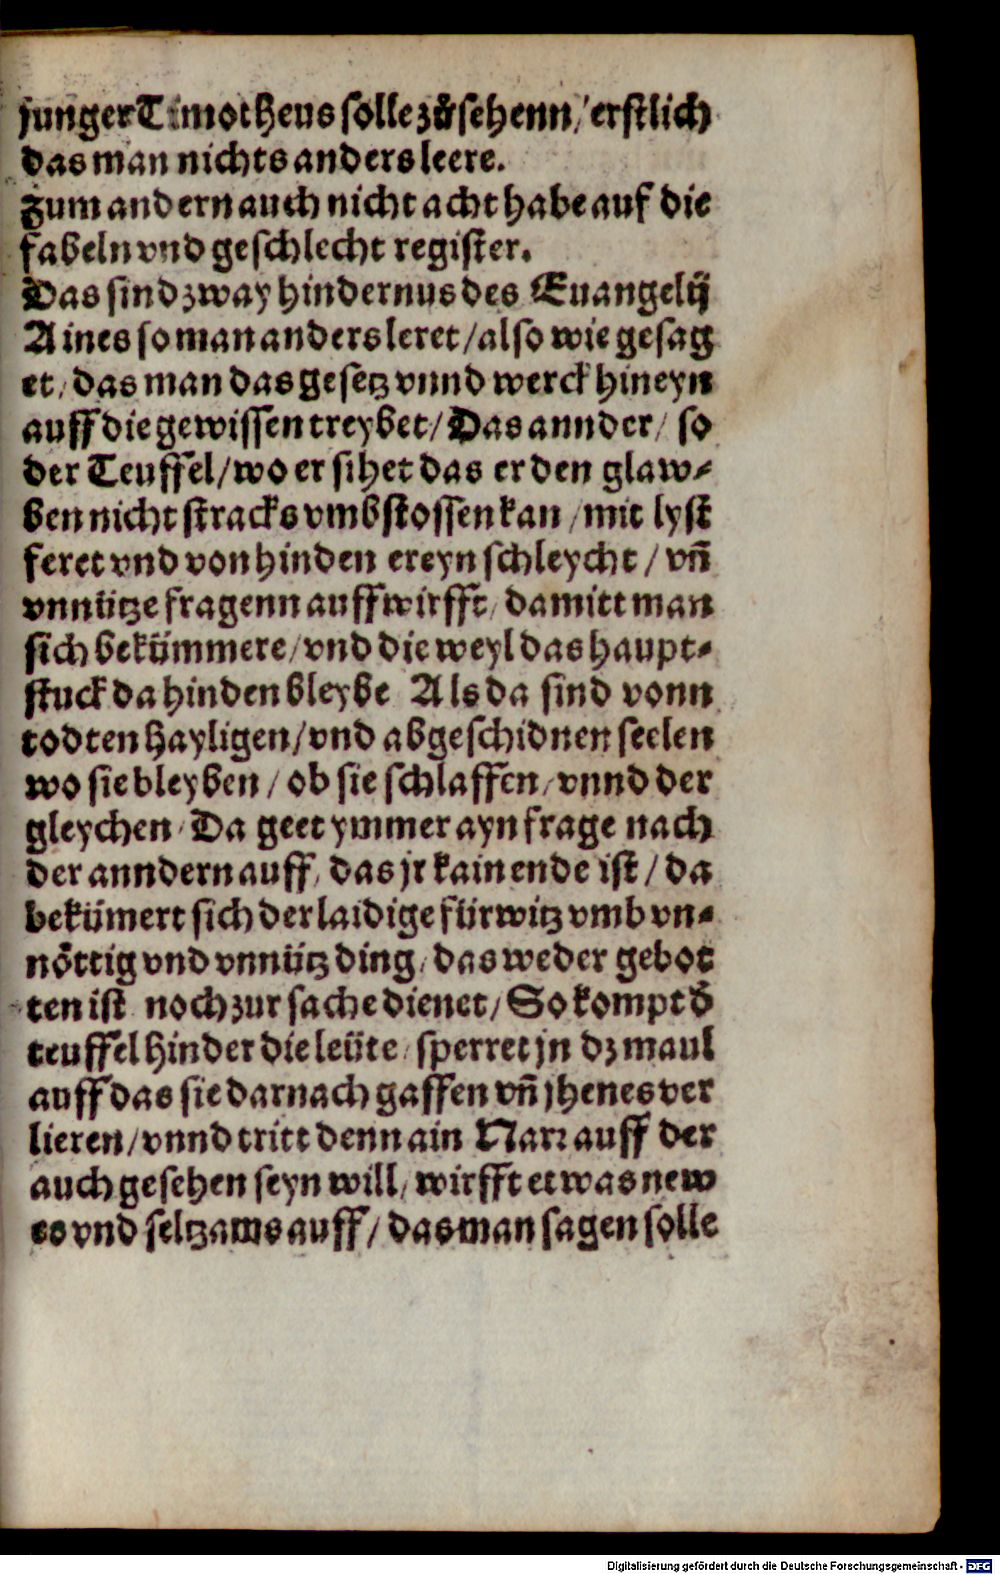 junger Timotheus solle zůsehenn / erstlich
das man nichts anders leere.
Zum andern auch nicht acht habe auf die
fabeln vnd geschlecht register.
Das sind zway hindernus des Euangelij
Aines so man anders leret / also wie gesag
et / das man das gesetz vnnd werck hineyn
auff die gewissen treybet / Das annder / so
der Teuffel / wo er sihet das er den glaw⸗
ben nicht stracks vmbstossen kan / mit lyst
feret vnd von hinden ereyn schleycht / vñ
vnnütze fragenn auffwirfft / damitt man
sich bekümmere / vnd die weyl das haupt⸗
stuck da hinden bleybe Als da sind vonn
todten hayligen / vnd abgeschidnen seelen
wo sie bleyben / ob sie schlaffen / vnnd der
gleychen / Da geet ymmer ayn frage nach
der anndern auff / das jr kain ende ist / da
bekümert sich der laidige fürwitz vmb vn⸗
nöttig vnd vnnütz ding / das weder gebot
ten ist noch zur sache dienet / So kompt d̄
teuffel hinder die leüte / sperret jn dz maul
auff das sie darnach gaffen vñ jhenes ver
lieren / vnnd tritt denn ain Narr auff der
auch gesehen seyn will / wirfft etwas new
es vnd seltzams auff / das man sagen solle
Digitalisierung gefördert durch die Deutsche Forschungsgemeinschaft - DFG